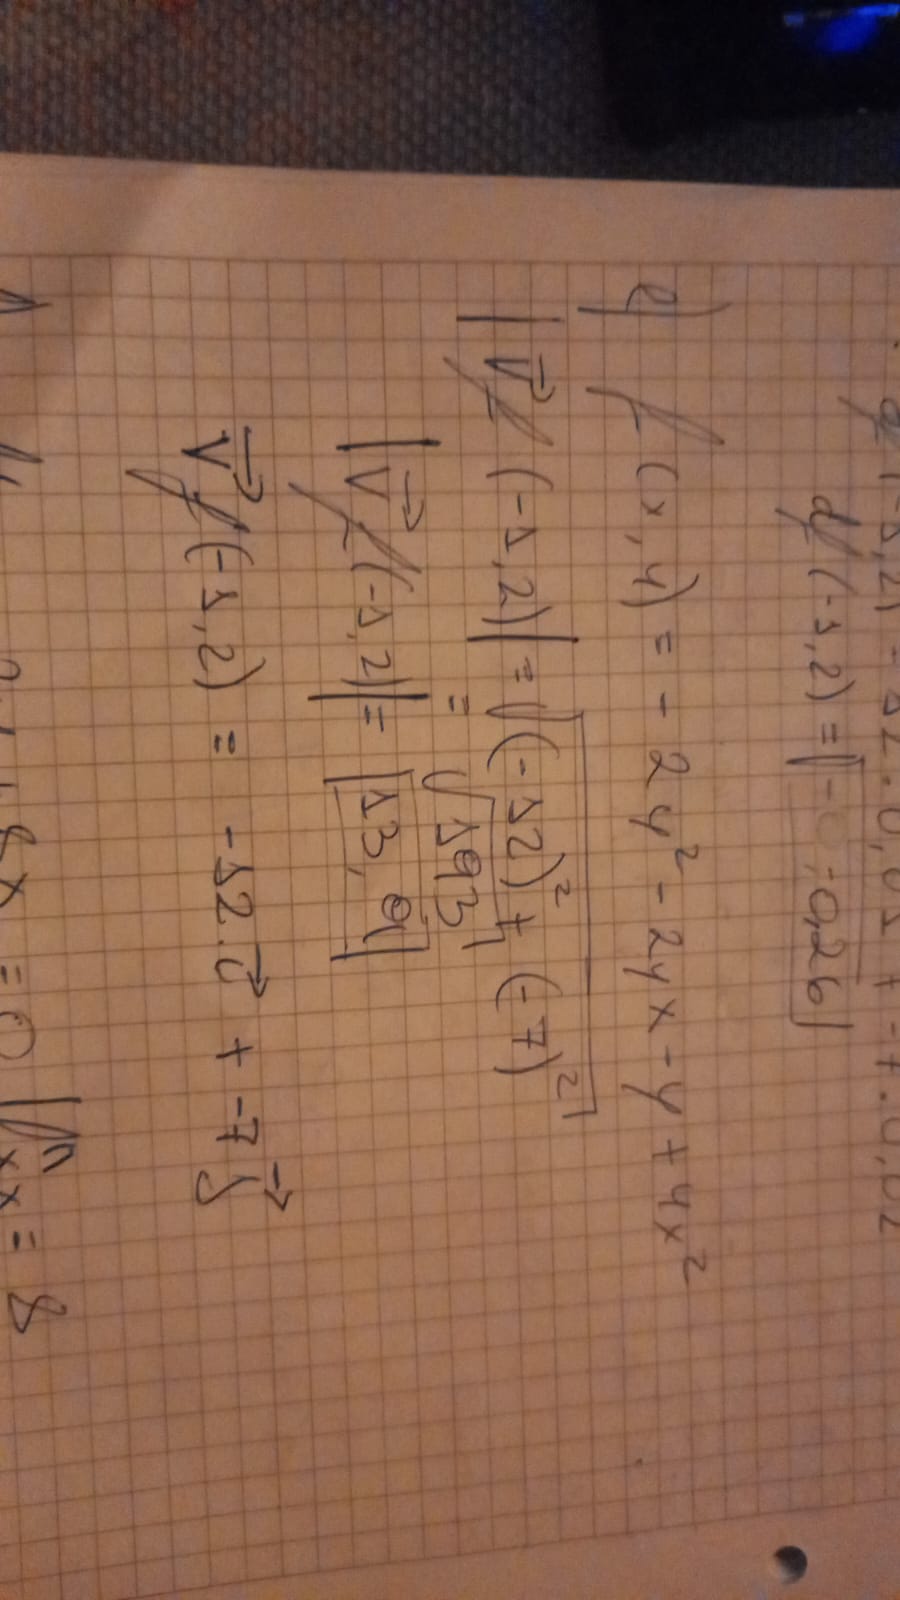 df(-1,2) = -12.0,01 + -7.0,02
df(-1,2) = -0,26
e) f(x,y) = -2y² - 2yx - y + 4x²
|∇⃗f(-1,2)| = √(-12)² + (-7)²
= √193
|∇⃗f(-1,2)| = 13,9
∇⃗f(-1,2) = -12.i⃗ + -7j⃗
8x = 0 xx = 8